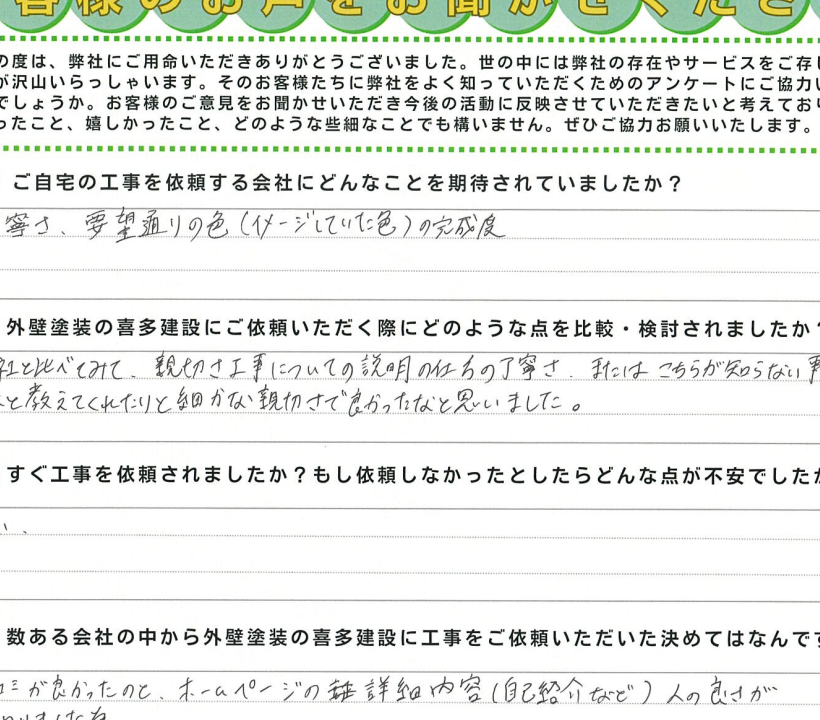 客様のお声をお聞かせくださ
の度は、弊社にご用命いただきありがとうございました。世の中には弊社の存在やサービスをご存し
が沢山いらっしゃいます。そのお客様たちに弊社をよく知っていただくためのアンケートにご協力い
でしょうか。お客様のご意見をお聞かせいただき今後の活動に反映させていただきたいと考えており
ったこと、嬉しかったこと、どのような些細なことでも構いません。ぜひご協力お願いいたします。
ご自宅の工事を依頼する会社にどんなことを期待されていましたか？
寧さ、要望通りの色（イメージしていた色）の完成度
外壁塗装の喜多建設にご依頼いただく際にどのような点を比較・検討されましたか？
社と比べてみて、親切さ工事についての説明の仕方の丁寧さ、または こちらが知らない事
と教えてくれたりと細かな親切さで良かったなと思いました。
すぐ工事を依頼されましたか？もし依頼しなかったとしたらどんな点が不安でしたか
い、
数ある会社の中から外壁塗装の喜多建設に工事をご依頼いただいた決めてはなんです
コミが良かったのと、ホームページの 詳細内容（自己紹介など）人の良さが